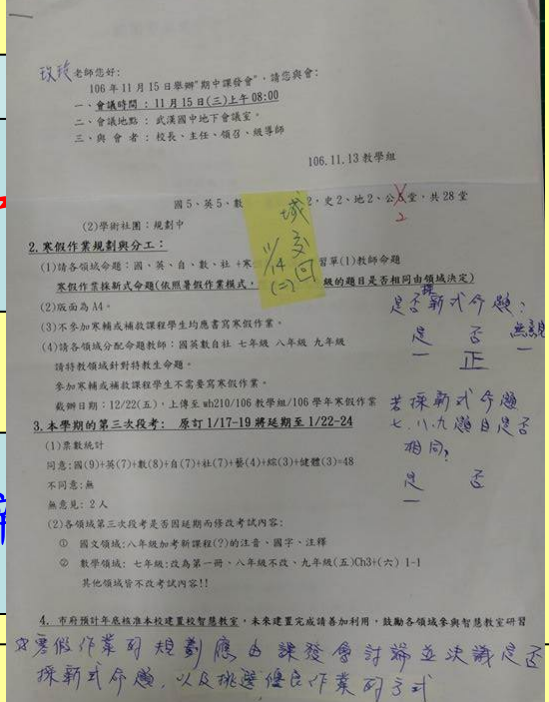 玫玫老師您好:
106 年 11 月 15 日舉辦"期中課發會",請您與會:
一、會議時間：11 月 15 日(三)上午 08:00
二、會議地點：武漢國中地下會議室。
三、與 會 者：校長、主任、領召、級導師
106.11.13 教學組
國 5、英 5、數 2、史 2、地 2、公 5 堂,共 28 堂
2
(2)學術社團：規劃中
2.寒假作業規劃與分工：
(1)請各領域命題：國、英、自、數、社 +寒 習單(1)教師命題
寒假作業採新式命題(依照暑假作業模式, 級的題目是否相同由領域決定)
(2)版面為 A4。
(3)不參加寒輔或補救課程學生均應書寫寒假作業。
(4)請各領域分配命題教師：國英數自社 七年級 八年級 九年級
請特教領域針對特教生命題。
參加寒輔或補救課程學生不需要寫寒假作業。
截辦日期：12/22(五),上傳至 wh210/106 教學組/106 學年寒假作業
域
交回
11/14
(二)
是否採新式命題?
是 否 無意見
一 正 一
若採新式命題
七.八.九題目是否
相同?
是 否
一
3.本學期的第三次段考： 原訂 1/17-19 將延期至 1/22-24
(1)票數統計
同意:國(9)+英(7)+數(8)+自(7)+社(7)+藝(4)+綜(3)+健體(3)=48
不同意:無
無意見: 2 人
(2)各領域第三次段考是否因延期而修改考試內容:
① 國文領域:八年級加考新課程(?)的注音、國字、注釋
② 數學領域: 七年級:改為第一冊、八年級不改、九年級(五)Ch3+(六) 1-1
其他領域皆不改考試內容!!
4. 市府預計年底核准本校建置校智慧教室,未來建置完成請善加利用,鼓勵各領域參與智慧教室研習
☆寒假作業的規劃應由課發會討論並決議是否
採新式命題,以及挑選優良作業的方式